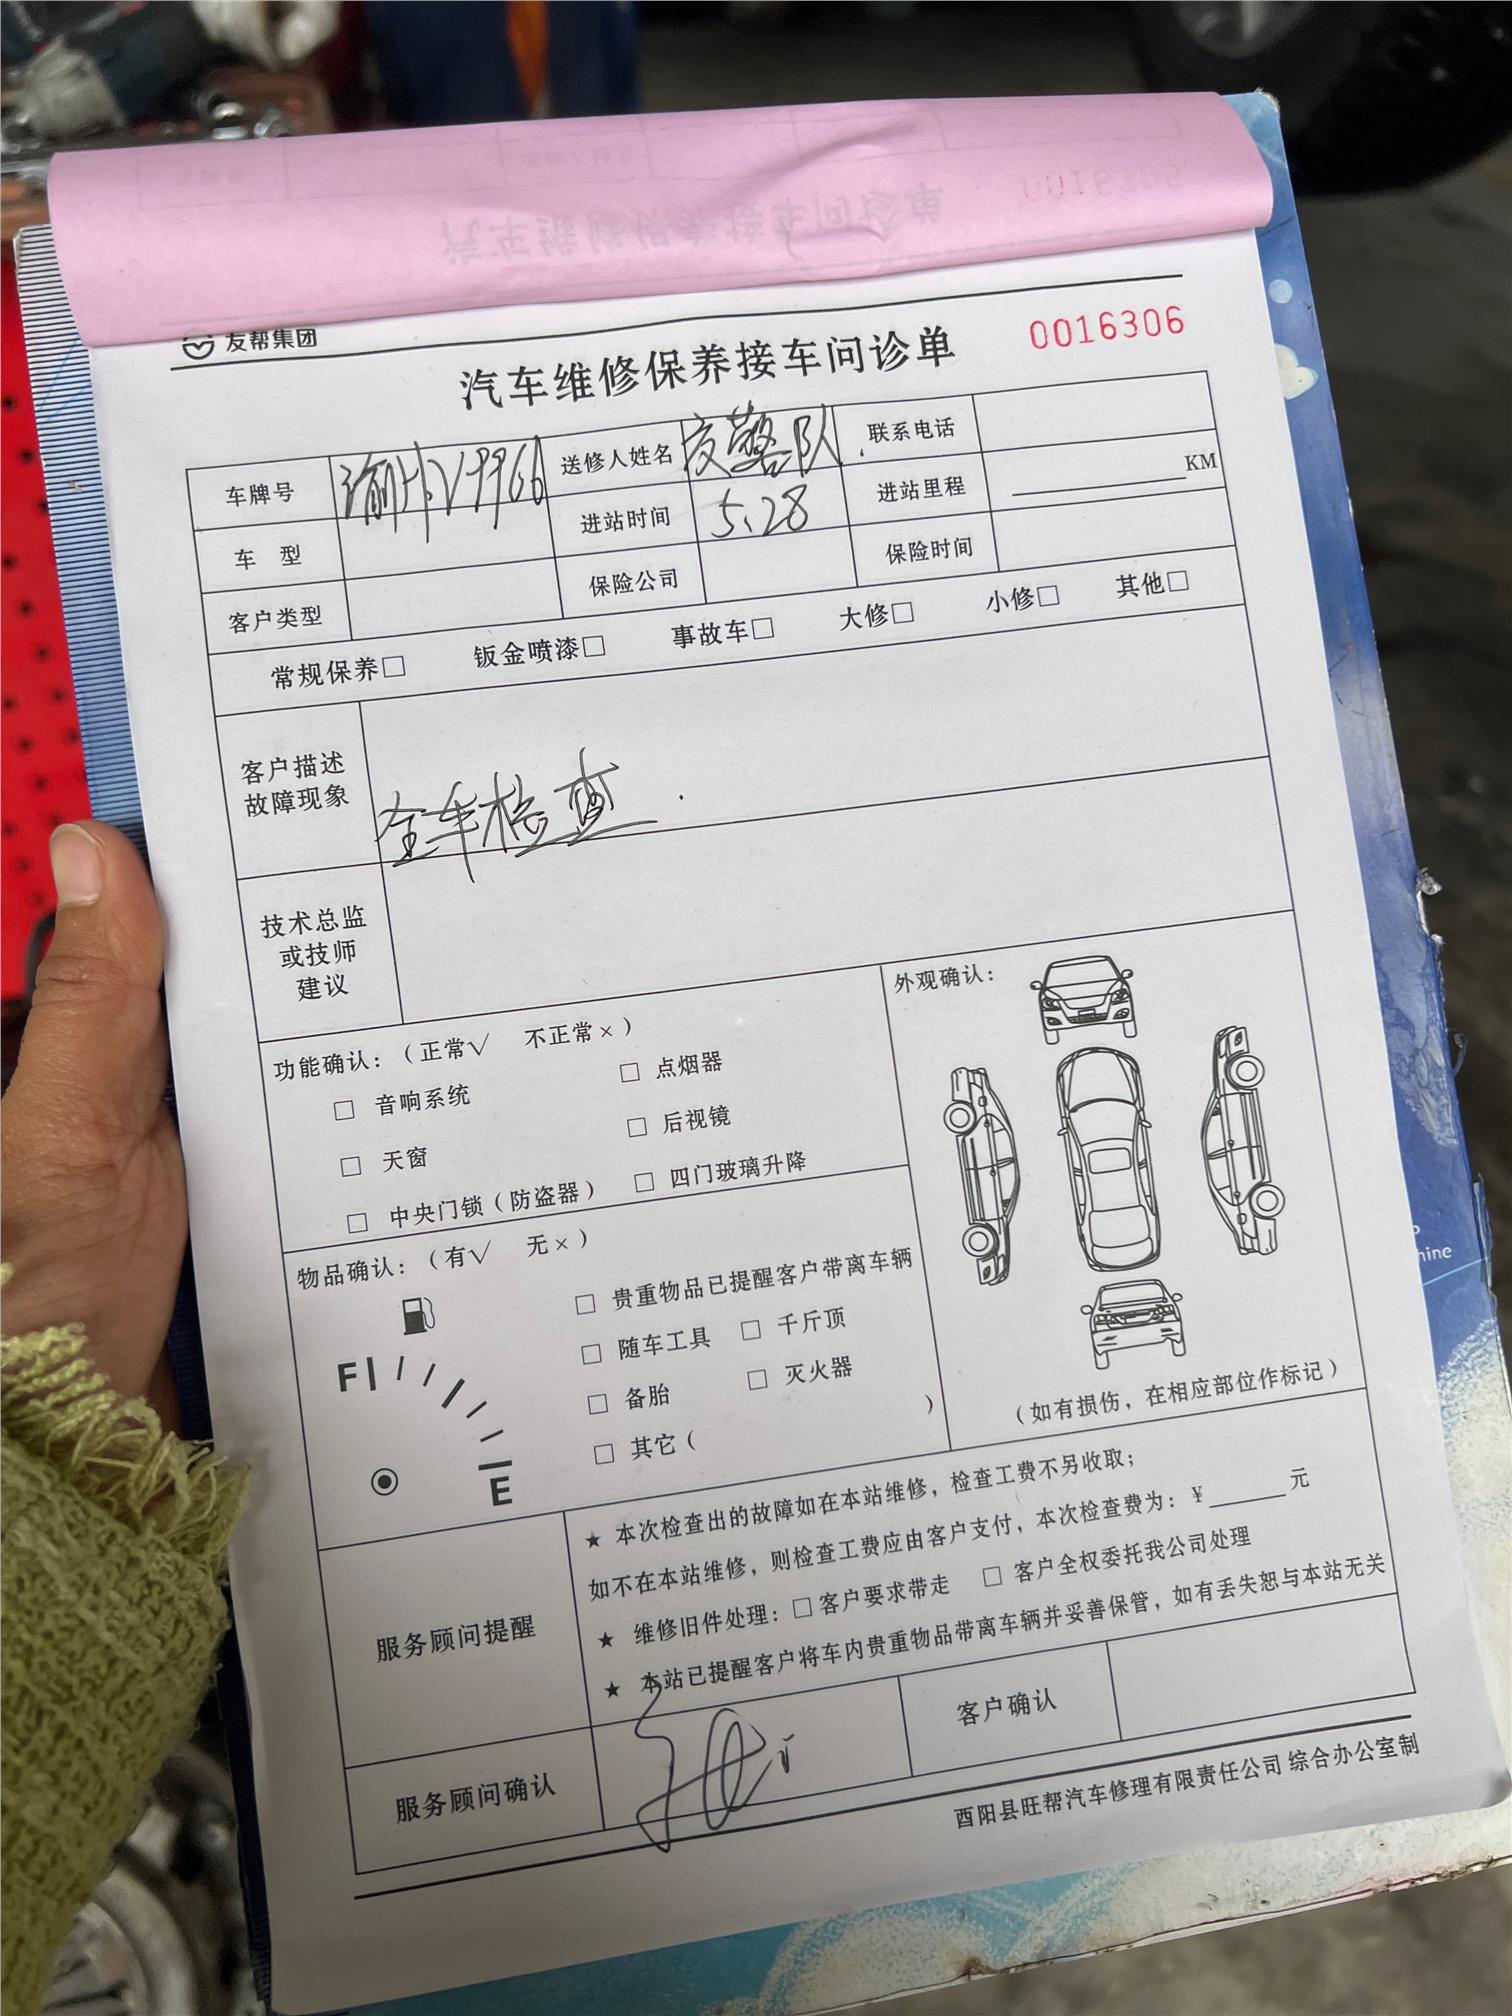 友帮集团
0016306
汽车维修保养接车问诊单
车牌号 送修人姓名 交警队 联系电话
车 型 进站时间 5.28 进站里程 KM
客户类型 保险公司 保险时间
常规保养□ 钣金喷漆□ 事故车□ 大修□ 小修□ 其他□
客户描述
故障现象
全车检查.
技术总监
或技师
建议
功能确认：（正常√ 不正常×）
□ 音响系统 □ 点烟器
□ 天窗 □ 后视镜
□ 中央门锁（防盗器） □ 四门玻璃升降
外观确认：
（如有损伤，在相应部位作标记）
物品确认：（有√ 无×）
□ 贵重物品已提醒客户带离车辆
□ 随车工具 □ 千斤顶
□ 备胎 □ 灭火器
□ 其它（ ）
F
E
服务顾问提醒
★ 本次检查出的故障如在本站维修，检查工费不另收取；
如不在本站维修，则检查工费应由客户支付，本次检查费为：¥______元
★ 维修旧件处理：□客户要求带走 □ 客户全权委托我公司处理
★ 本站已提醒客户将车内贵重物品带离车辆并妥善保管，如有丢失恕与本站无关
服务顾问确认 客户确认
酉阳县旺帮汽车修理有限责任公司 综合办公室制